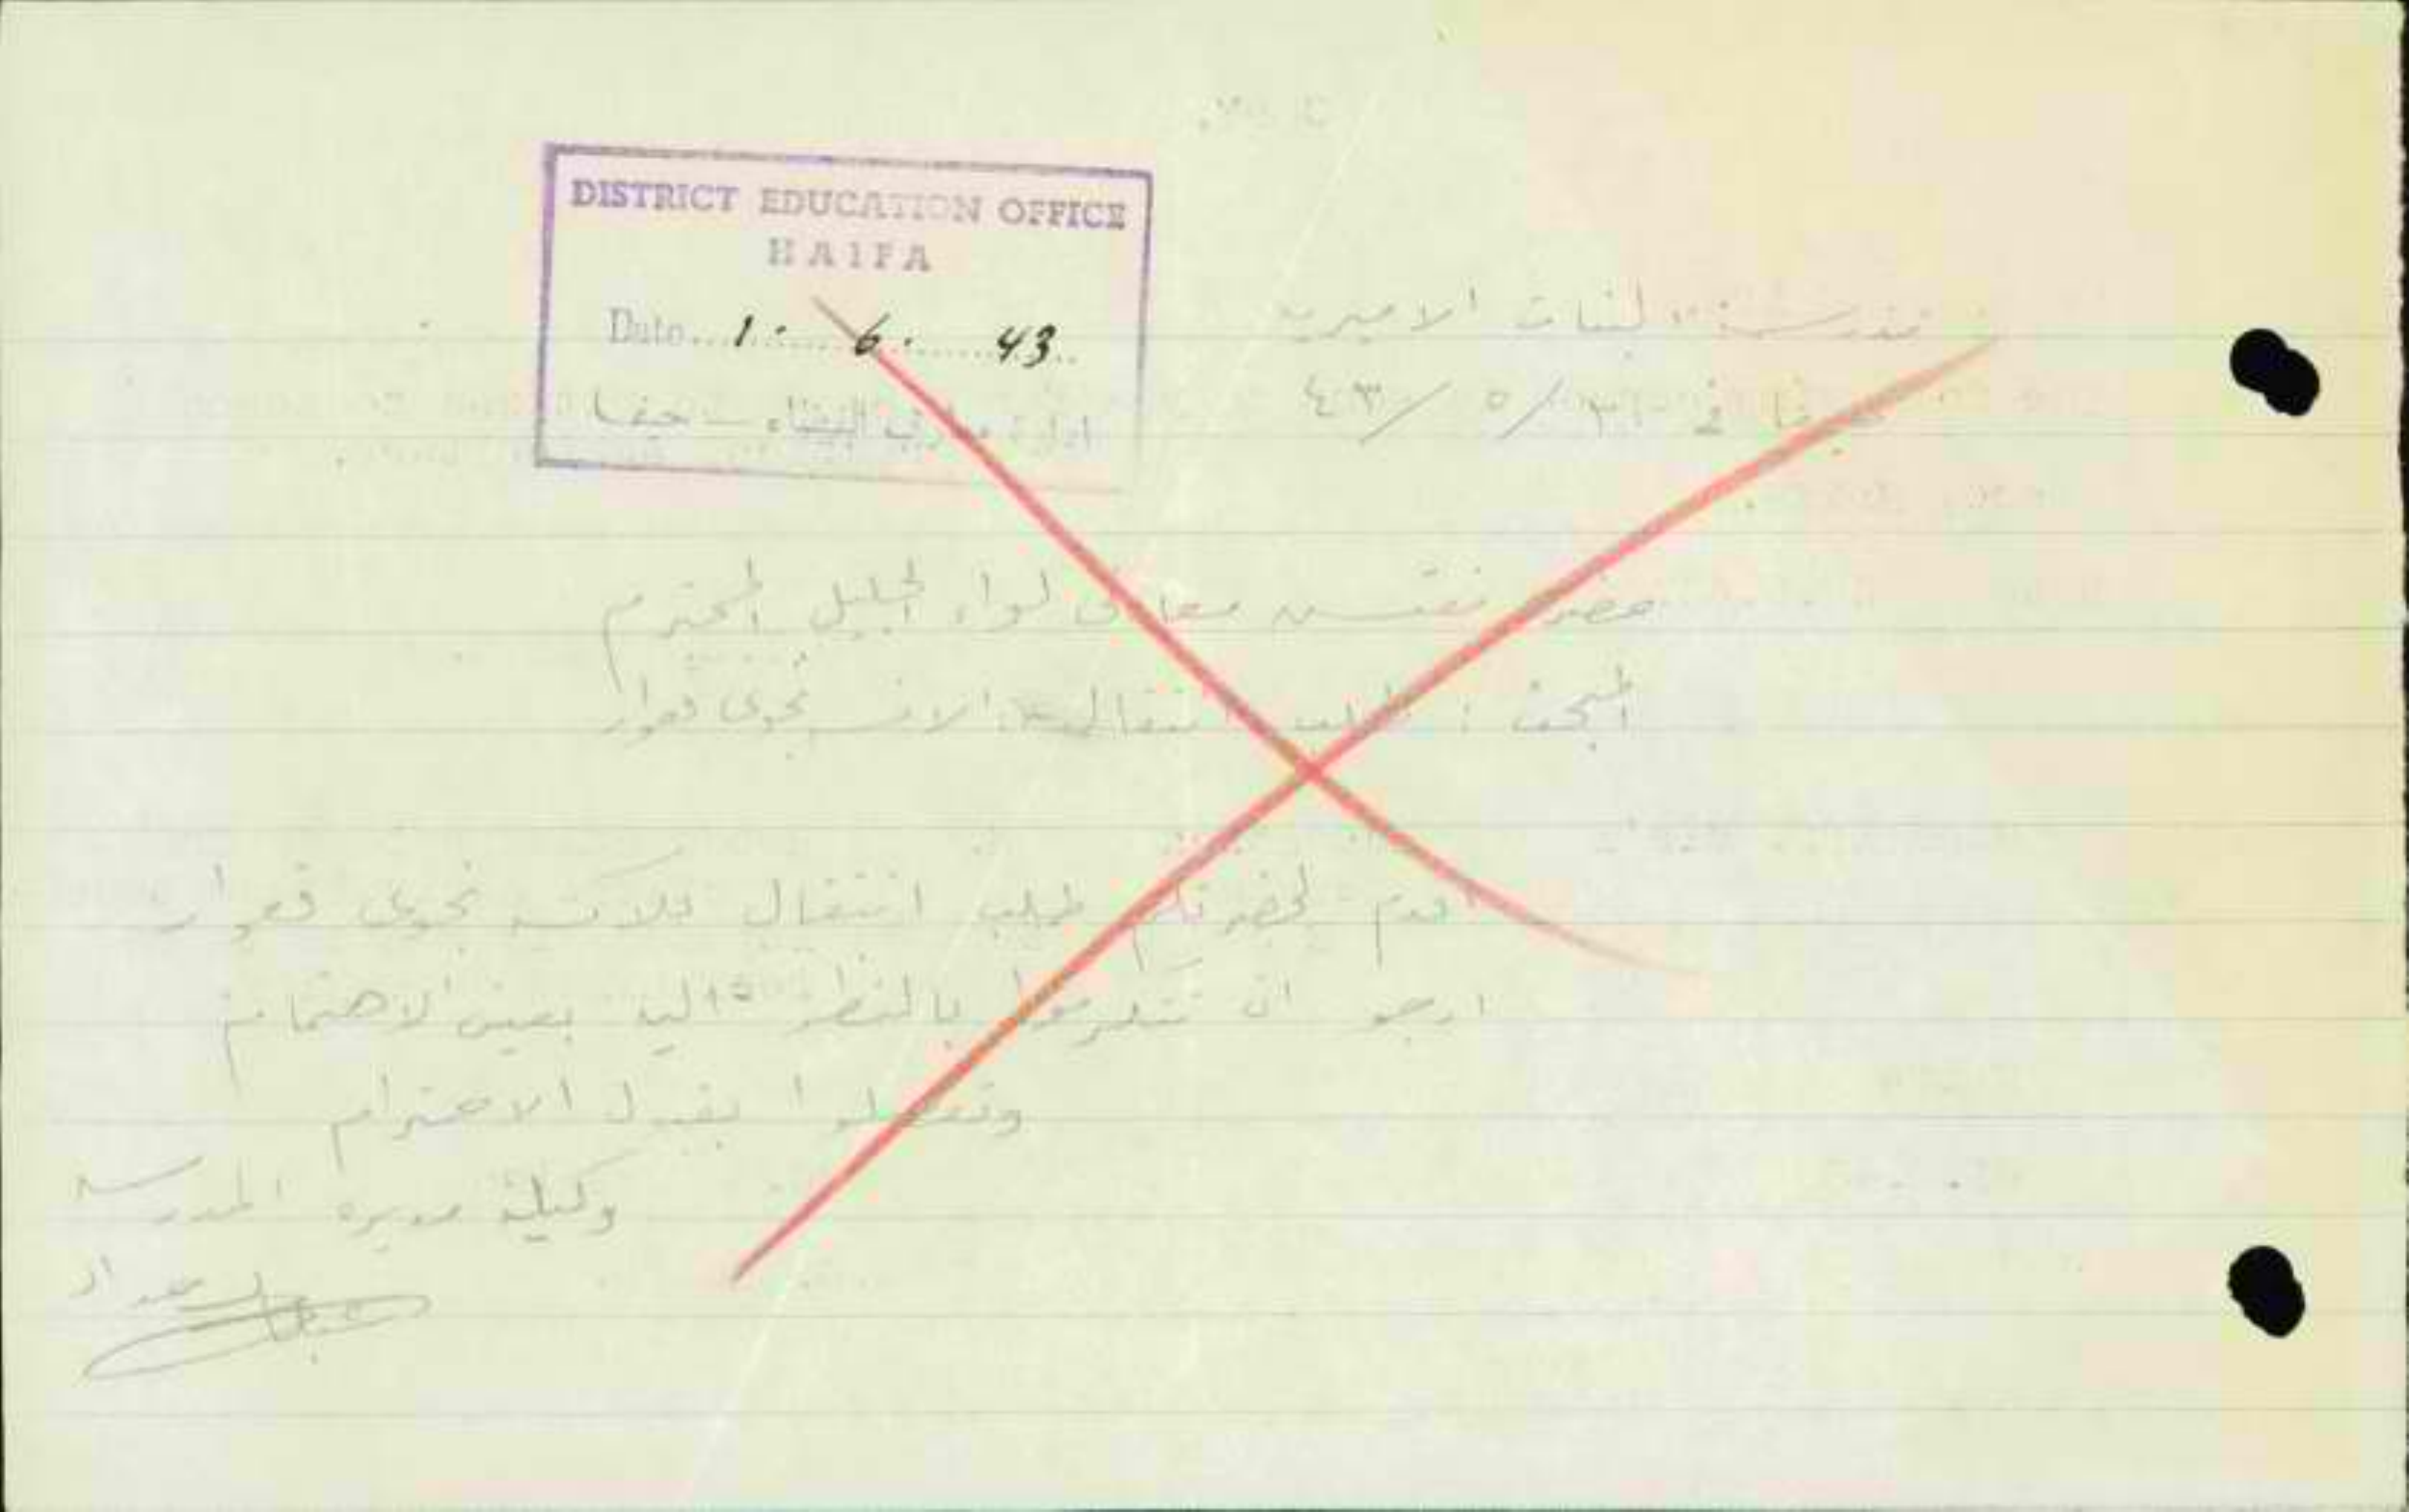 DISTRICT EDUCATION OFFICE
HAIFA
Date... 1. 6. 43
ادارة معارف اللواء - حيفا
مدرسة البنات الاميرية
في ٣١ / ٥ / ٤٣
حضرة مفتش معارف لواء الجليل المحترم
المبحث : طلب انتقال الانسة نجوى قعوار
اقدم لحضرتكم طلب انتقال للانسة نجوى قعوار
ارجو ان تتكرموا بالنظر اليه بعين الاهتمام
وتفضلوا بقبول الاحترام
وكيلة مديرة المدرسة